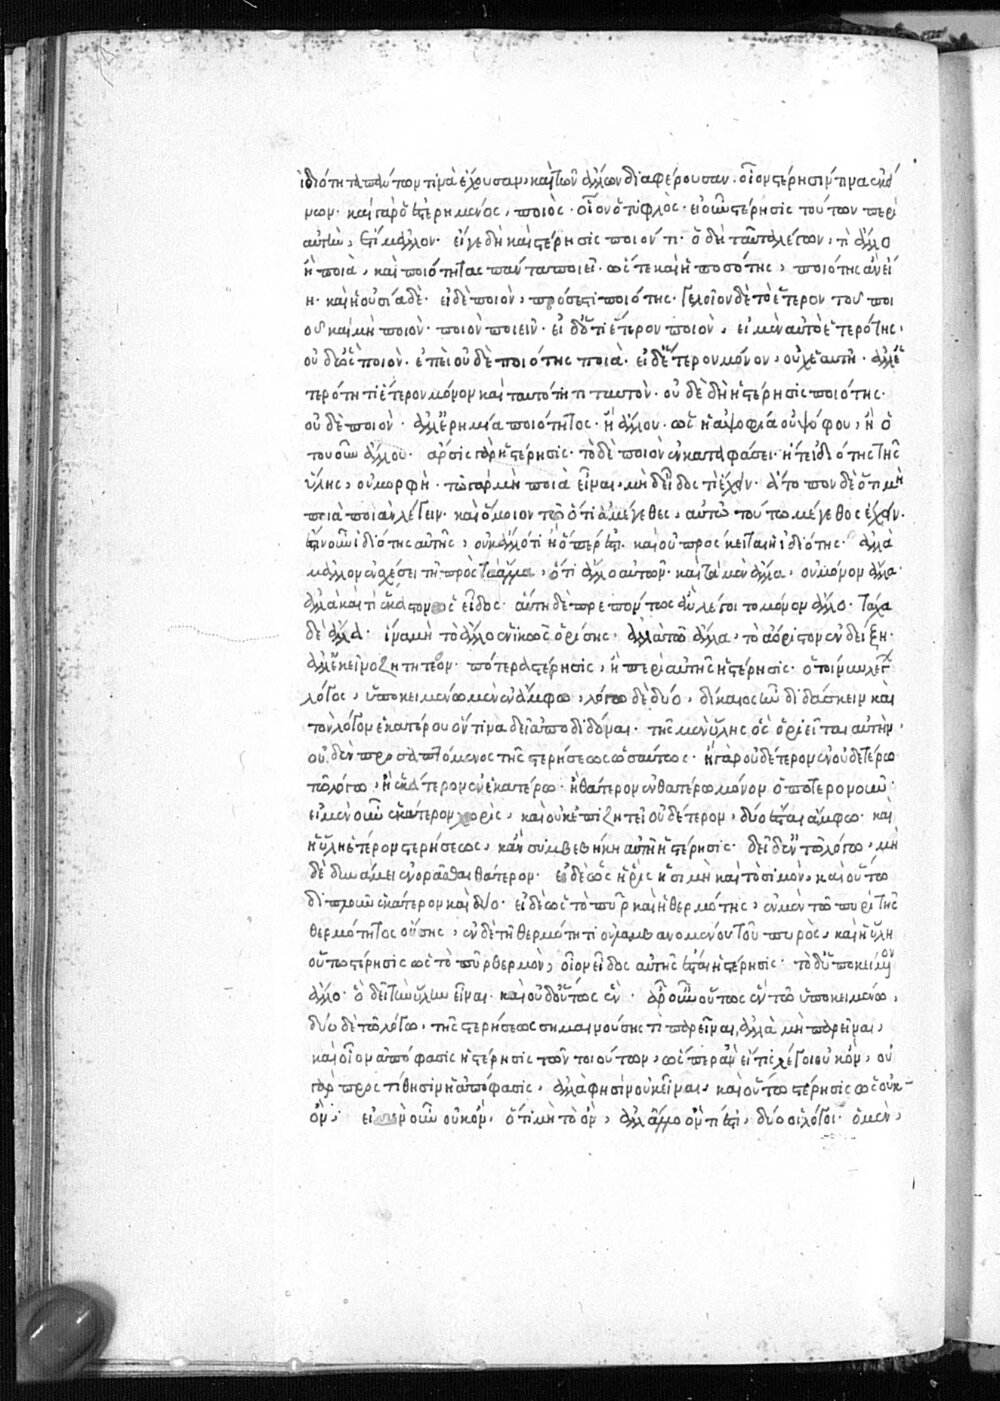 ἰδιότητα πάντων τινὰ ἔχουσαν, καὶ τῶν ἄλλων διαφέρουσαν. οἷον στέρησίν τινα ἐκεί
νων· καὶ γὰρ ὁ ἐστερημένος, ποιός· οἷον ὁ τυφλός· εἰ οὖν στέρησις τούτων περὶ
αὐτὴν, ἔτι μᾶλλον· εἴγε δὴ καὶ στέρησις ποιόν τι· ὁ δὴ ταῦτα λέγων, τί ἄλλο
ἢ ποιὰ, καὶ ποιότητας πάντα ποιεῖ· ὥστε καὶ ἡ ποσότης, ποιότης ἂν εἴ
η· καὶ ἡ οὐσία δέ· εἰ δὲ ποιὸν, πρόσεστι ποιότης· γελοῖον δὲ τὸ ἕτερον τοῦ ποι
οῦ καὶ μὴ ποιὸν· ποιὸν ποιεῖν· εἰ δ' ὅτι ἕτερον ποιὸν, εἰ μὲν αὐτὸ ἑτερότης·
οὐδ' ὣς ποιὸν· ἐπεὶ οὐδὲ ποιότης ποιὰ· εἰ δ' ἕτερον μόνον, οὐχ ἑαυτῇ· ἀλλ' ἑ
τερότητι ἕτερον μόνον καὶ ταυτότητι ταυτὸν· οὐδὲ δὴ ἡ στέρησις ποιότης·
οὐδὲ ποιὸν· ἀλλ' ἐρημία ποιότητος· ἢ ἄλλου· ὡς ἡ ἀψοφία οὐ ψόφου, ἢ ὅ
του οὖν ἄλλου· ἄρσις γὰρ ἡ στέρησις· τὸ δὲ ποιὸν ἐν καταφάσει· ἥ τε ἰδιότης τῆς
ὕλης, οὐ μορφὴ· τῷ γὰρ μὴ ποιὰ εἶναι, μὴ δ' εἶδος τὶ ἔχειν· ἄτοπον δὲ ὅτι μὴ
ποιὰ ποιὰν λέγειν· καὶ ὅμοιον τῷ ὅτι ἀμεγέθες, αὐτῷ τούτῳ μέγεθος ἔχειν·
ἔστιν οὖν ἰδιότης αὐτῆς, οὐκ ἄλλό τι ἢ ὅπερ ἐστὶ· καὶ οὐ πρόσκειται ἡ ἰδιότης· ἀλλὰ
μᾶλλον ἐν σχέσει τῇ πρὸς τὰ ἄλλα, ὅτι ἄλλο αὐτῶν· καὶ τὰ μὲν ἄλλα, οὐ μόνον ἄλλα·
ἀλλὰ καὶ τὶ ἕκαστον ὡς εἶδος· αὕτη δὲ πρεπόντως ἂν λέγοιτο μόνον ἄλλο· τάχα
δὲ ἄλλα· ἵνα μὴ τὸ ἄλλο ἑνικῶς ὁρίσῃς· ἀλλὰ τῷ ἄλλα, τὸ ἀόριστον ἐνδείξῃ·
ἀλλ' ἐκεῖνο ζητητέον· πότερα στέρησις, ἢ περὶ αὐτῆς ἡ στέρησις· ὁ τοίνυν λέγων
λόγος, ὑποκειμένῳ μὲν ἓν ἄμφω, λόγῳ δὲ δύο, δίκαιος ἦν διδάσκειν καὶ
τὸν λόγον ἑκατέρου ὅντινα δεῖ ἀποδιδόναι· τῆς μὲν ὕλης ὃς ὁριεῖται αὐτὴν·
οὐδὲν προσαπτόμενος τῆς στερήσεως ὡσαύτως· ἢ γὰρ οὐδέτερον ἐν οὐδετέρῳ
τῷ λόγῳ, ἢ ἑκάτερον ἐν ἑκατέρῳ· ἢ θάτερον ἐν θατέρῳ μόνον ὁποτερονοῦν·
εἰ μὲν οὖν ἑκάτερον χωρὶς, καὶ οὐκ ἐπιζητεῖ οὐδέτερον, δύο ἔσται ἄμφω· καὶ
ἡ ὕλη ἕτερον στερήσεως, κἂν συμβεβήκῃ αὐτῇ ἡ στέρησις· δεῖ δ' ἐν τῷ λόγῳ, μὴ
δὲ δυνάμει ἐνορᾶσθαι θάτερον· εἰ δὲ ὡς ἡ ῥὶς ἡ σιμὴ καὶ τὸ σιμὸν, καὶ οὕτω
διπλοῦν ἑκάτερον καὶ δύο· εἰ δὲ ὡς τὸ πῦρ καὶ ἡ θερμότης, ἐν μὲν τῷ πυρὶ τῆς
θερμότητος οὔσης, ἐν δὲ τῇ θερμότητι οὐ λαμβανομένου τοῦ πυρὸς, καὶ ἡ ὕλη
οὕτω στέρησις ὡς τὸ πῦρ θερμὸν, οἷον εἶδος αὐτῆς ἔσται ἡ στέρησις· τὸ δ' ὑποκείμενον
ἄλλο· ὃ δεῖ τὴν ὕλην εἶναι· καὶ οὐδ' οὕτως ἓν· ἆρ' οὖν οὕτως ἓν τῷ ὑποκειμένῳ,
δύο δὲ τῷ λόγῳ, τῆς στερήσεως σημαινούσης τὶ παρεῖναι, ἀλλὰ μὴ παρεῖναι,
καὶ οἷον ἀπόφασις ἡ στέρησις τῶν τοιούτων, ὥσπερ ἂν εἴ τις λέγοι οὐκ ὄν, οὐ
γὰρ προστίθησιν ἡ ἀπόφασις, ἀλλά φησιν οὐκ εἶναι, καὶ οὕτω στέρησις ὡς οὐκ
ὄν· εἰ μὲν οὖν οὐκ ὄν· ὅτι μὴ τὸ ὂν, ἀλλ' ἄλλο ὄν τί ἐστι, δύο οἱ λόγοι· ὁ μὲν,